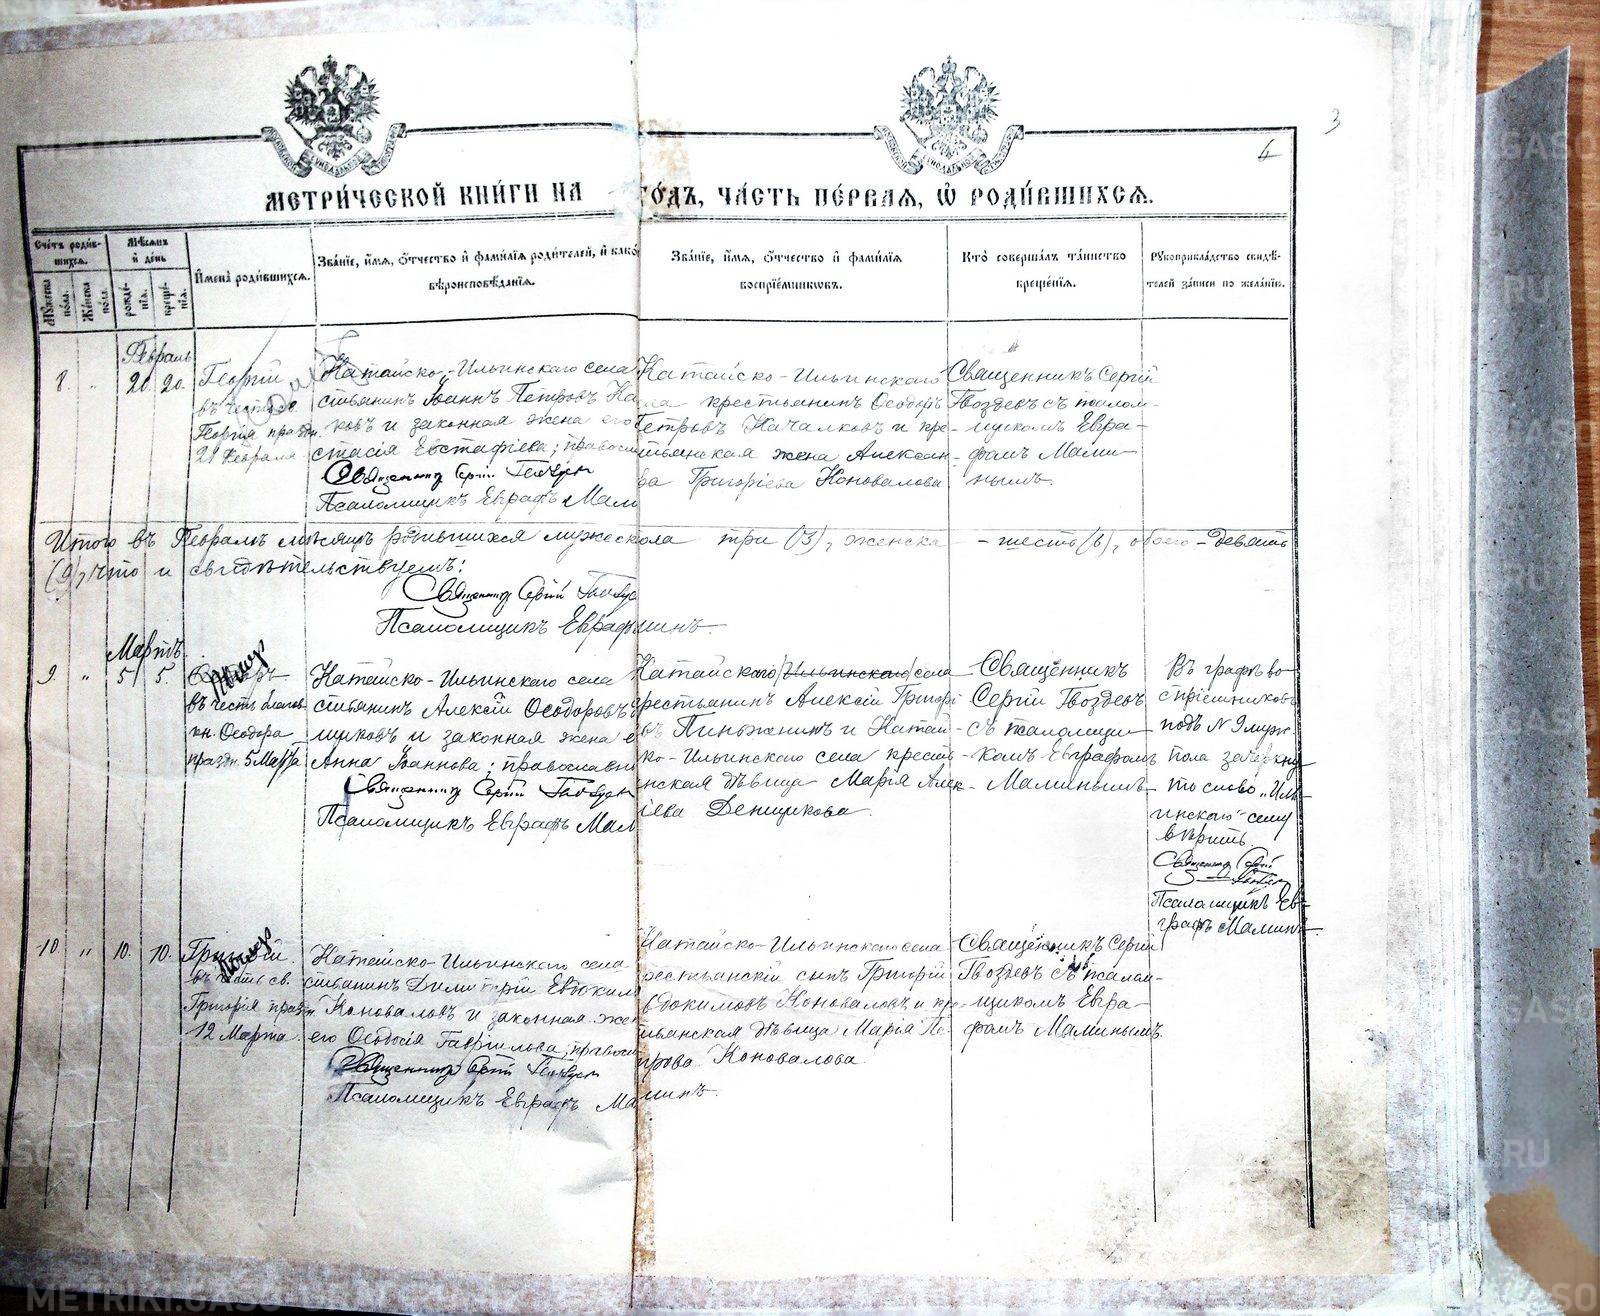 3
4
МЕТРИ́ЧЕСКОЙ КНИ́ГИ НА ГО́ДЪ, ЧА́СТЬ ПЕ́РВАЯ, Ѡ҆ РОДИ́ВШИХСѦ.
Сче́тъ роди́в-
шихсѧ.
Мѣ́сѧцъ
и҆ де́нь
И҆мена̀ роди́вшихсѧ.
Зва́нїе, и҆́мѧ, ѻ҆́тчество и҆ фами́лїѧ роди́телей, и҆ како́
вѣроисповѣ́данїѧ.
Зва́нїе, и҆́мѧ, ѻ҆́тчество и҆ фами́лїѧ
воспрїе́мниковъ.
Кто̀ соверша́лъ та́инство
креще́нїѧ.
Рꙋкоприкла́дство свидѣ́-
телей за́писи по жела́нїю.
Мꙋ́жеска
по́ла.
Же́нска
по́ла.
рожде́-
нїѧ.
креще́-
нїѧ.
Февраль
8. " 20. 20.
Георгій
въ честь св.
Георгія праздн.
21 Февраля
Катайско-Ильинскаго села
стьянинъ Іоаннъ Петровъ Ка
ковъ и законная жена его
стасія Евстафіева; правосл
Священникъ Сергій Гвоздевъ
Псаломщикъ Евграфъ Мали
Катайско-Ильинскаго
ла крестьянинъ Ѳеодоръ
Петровъ Качалковъ и кре-
стьянская жена Алексан-
ра Григоріева Коновалова
Священникъ Сергій
Гвоздевъ съ псалом-
щикомъ Евгра-
фомъ Мали-
нымъ.
Итого въ Февралѣ мѣсяцѣ родившихся мужеска пола три (3), женска - шесть (6), обоего - девять
(9), что и свидѣтельствуемъ:
Священникъ Сергій Гвоздев
Псаломщикъ Евграфъ Малинъ.
Мартъ.
9. " 5. 5.
Ѳеодоръ
въ честь благов.
кн. Ѳеодора
праздн. 5 Марта
Катайско-Ильинскаго села
стьянинъ Алексій Ѳеодоровъ
щиковъ и законная жена е
Анна Іоаннова; православн
Священникъ Сергій Гвоздевъ
Псаломщикъ Евграфъ Мал
Катайскаго (Ильинскаго) села
рестьянинъ Алексій Григорі
въ Пинженинъ и Катай-
ко-Ильинскаго села кресть-
нская дѣвица Марія Алек-
іева Денщикова.
Священникъ
Сергій Гвоздевъ
съ псаломщи-
комъ Евграфомъ
Малинымъ
Въ графѣ во-
спріемниковъ
подъ N 9 муж.
пола зачеркну-
то слово "Иль-
инскаго" сему
вѣрить
Священникъ Сергій
Гвоздевъ
Псаломщикъ Ев-
графъ Малинъ.
10. " 10. 10.
Григорій
въ честь св.
Григорія празд
12 Марта.
Катайско-Ильинскаго села
стьянинъ Димитрій Евдоким
Коноваловъ и законная жен
его Ѳеодосія Гавриілова; правосл
Священникъ Сергій Гвоздевъ
Псаломщикъ Евграфъ Малинъ.
Катайско-Ильинскаго села
рестьянскій сынъ Григорій
вдокимовъ Коноваловъ и кре-
тьянская дѣвица Марія Пе-
трова Коновалова
Священникъ Сергій
Гвоздевъ съ псалом-
щикомъ Евгра-
фомъ Малинымъ.
METRIKI.GASO-URAL.RU